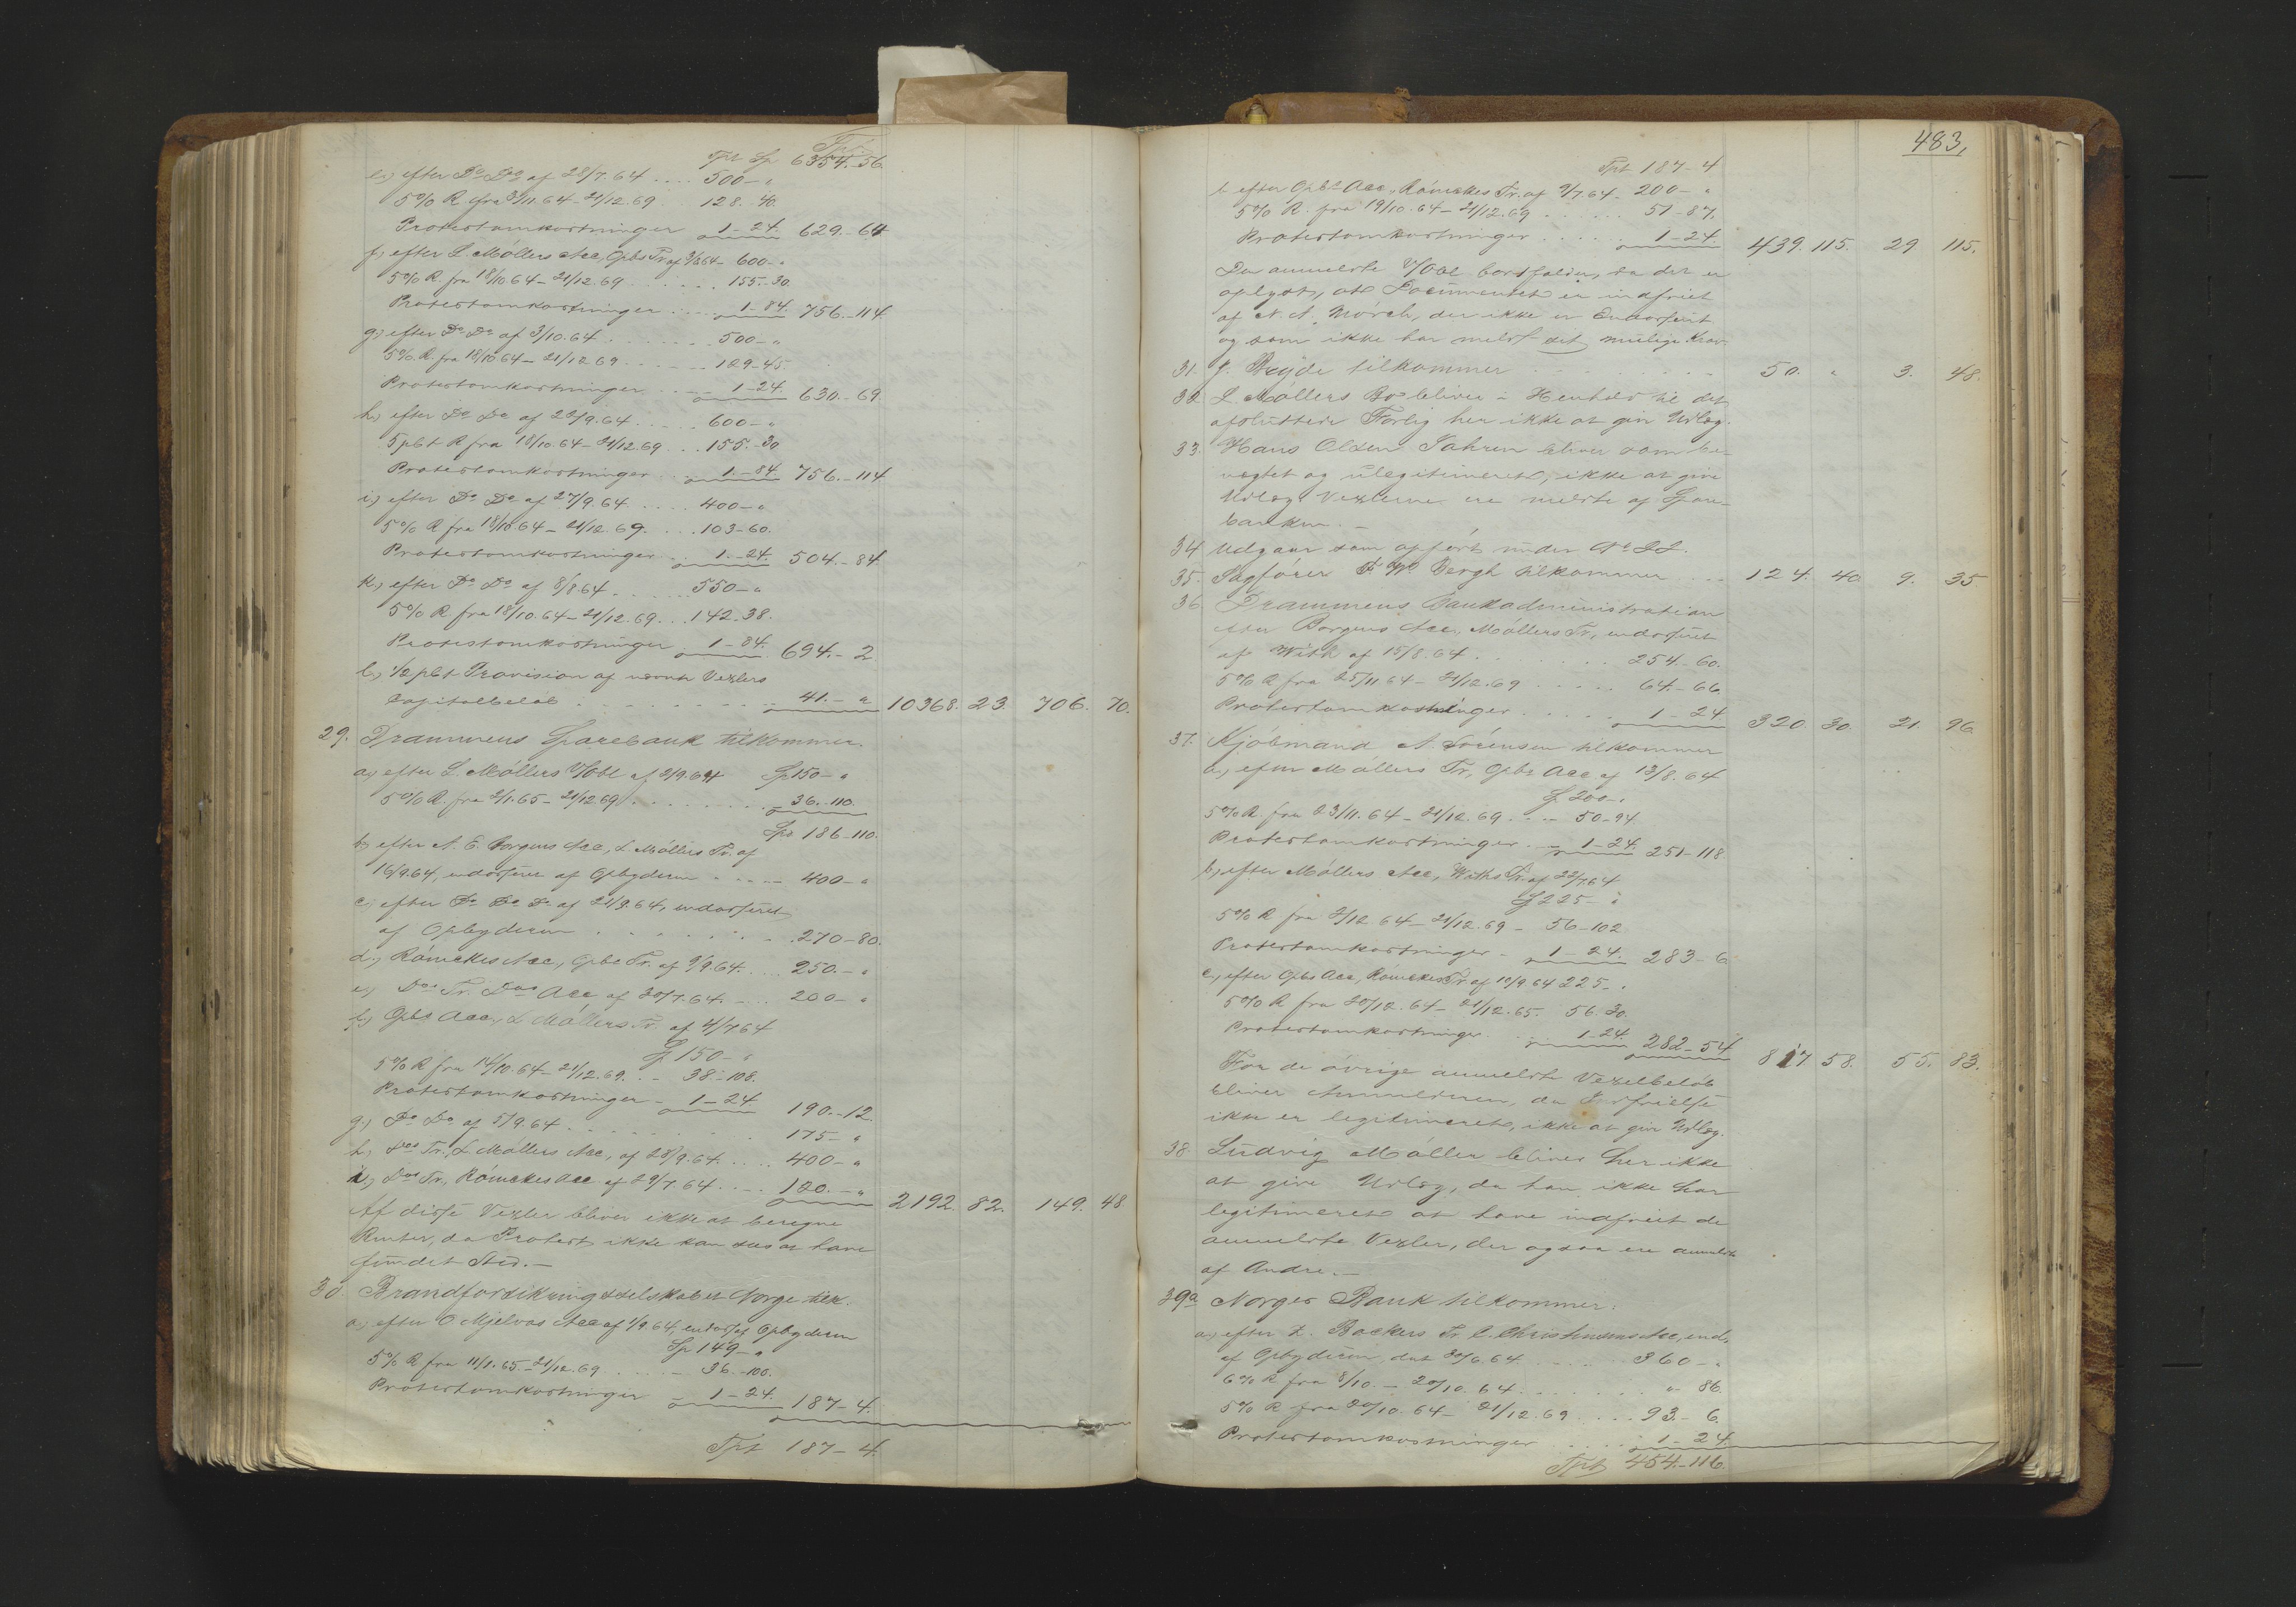 Tpt
Tpt Sp 6354-56
e,) efter Do Do af 28/7.64 .... 500 - "
5% R fra 3/11.64 - 21/12.69 .. 128.-40.
Protestomkostninger 1-24. 629.-64
f,) efter L. Møllers Acc, Opbs Tr. af 600 - "
5% R. fra 18/10.64 - 21/12.69 ...... 155.-30.
Protestomkostninger .... 1-84. 756.-114
g,) efter Do Do af 3/10.64 ....... 500 - "
5% R. fra 18/10.64 - 21/12.69 ..... 129-45.
Protestomkostninger .... 1-24. 630.-69.
h,) efter Do Do af 22/9.64 ..... 600 - "
5 pCt R fra 18/10.64 - 21/12.69 ... 155.-30
Protestomkostninger .. 1-84. 756.-114
i,) efter Do Do af 27/9.64 ..... 400 - "
5% R fra 18/10.64 - 21/12.69. ... 103-60.
Protestomkostninger .. 1.-24. 504.-84
k,) efter Do Do af 8/8.64 ...... 550 - "
5% R. fra 18/10.64 - 21/12.69 ... 142-38.
Protestomkostninger 1-84. 694.-2
l,) 1/2 pCt Provision af Vexlers
Capitalbeløb ......... 41.- " 10368. 23. 706. 70.
29. Drammens Sparebank tilkommer.
a,) efter L. Møllers V/Obl af 2/9.64 Sp 150 - "
5% R. fra 2/1.65 - 21/12.69 ........ 36.-110.
Sp 186-110.
b,) efter A. E. Borgens Acc, L Møllers Tr. af
16/9.64, endosseret af Opbyderen ..... 400 - "
c,) efter Do Do Do af 21/9.64, endosseret
af Opbyderen ....... 270-80.
d,) Rømckes Acc, Opbs Tr. af 9/9.64. ... 250. - "
e,) Dos Tr. Dos Acc af 30/7.64. .... 200 - "
f,) Opbs Acc, L Møllers Tr. af 4/7 64
Sp 150 - "
5% R fra 14/10.64 - 21/12.69. . - 38.-108.
Protestomkostninger - 1-24 190.-12.
g,) Do Do af 5/9.64 ........ 175 - "
h,) Dos Tr., L Møllers Acc, af 28/9.64. .... 400 - "
i,) Dos Tr., Rømckes Acc af 29/7.64 .... 120. - " 2192. 82. 149. 48
Af disse Vexler bliver ikke at beregne
Renter, da Protest ikke kan sees at have
fundet Sted. -
30 Brandforsikringsselskabet Norge tilk.
a,) efter O Mjelvas Acc af 1/9.64, endoss. af Opbyderen
Sp 149 - "
5% R fra 11/1.65 - 21/12.69 .... - 36.-100.
Protestomkostninger - 1-24. 187-4.
Tpt 187-4.
483,
Tpt 187-4
b efter Opbs Acc, Rømckes Tr. af 9/7.64 - 200 - "
5% R. fra 19/10.64 - 21/12.69 ...... 51-87.
Protestomkostninger ...... 1-24. 439. 115. 29 115.
Den anmeldte V/Obl bortfalder, da det er
oplyst, at Documentet er indfriet
af N. A. Mørch, der ikke er Endossent
og som ikke har meldt sit mulige Krav.
31. J. Bryde tilkommer ....... 50. " 3. 48.
32 L Møllers Bo bliver i Henhold til det
afsluttede Forlig her ikke at give Udlæg.
33. Hans Olsen Jahren bliver som be-
nægtet og ulegitimeret, ikke at give
Udlæg. Vexlerne ere meldte af Spare-
banken. -
34 Udgaar som opført under No 22.
35. Sagfører F W Bergh tilkommer ... 124. 40. 9. 35
36. Drammens Bankadministration
efter Borgens Acc, Møllers Tr., endosseret
af With af 15/8.64 ....... 254.-60.
5% R fra 25/11.64 - 21/12.69 ..... 64.-66
Protestomkostninger ...... 1-24. 320. 30. 21. 96
37. Kjøbmand A. Sørensen tilkommer
a,) efter Møllers Tr, Opbs Acc af 13/8.64
Sp 200 - "
5% R. fra 23/11.64 - 21/12.69 ... - 50-94.
Protestomkostninger . - 1-24. 251-118
b,) efter Møllers Acc, Withs Tr. af 22/7.64
Sp 225 - "
5% R fra 2/12.64 - 21/12.69 - 56-102
Protestomkostninger - 1-24. 283-6
c,) efter Opbs Acc, Rømckes Tr. af 10/9.64 225 - "
5% R fra 20/12.64 - 21/12.65. 56.30.
Protestomkostninger . . 1-24. 282-54 817 58. 55. 83.
For de øvrige anmeldte Vexelbeløb
bliver Anmelderen, da Indfrielse
ikke er legitimeret, ikke at give Udlæg.
38 Ludvig Møller bliver her ikke
at give Udlæg, da han ikke har
legitimeret at have indfriet de
anmeldte Vexler, der ogsaa ere anmeldte
af Andre. -
39a Norges Bank tilkommer:
a,) efter Z. Backers Tr. C. Christensens Acc, end.
af Opbyderen, dat 30/6.64 ..... 360 - "
6% R fra 8/10. - 20/10.64 ....... " 86.
5% R fra 20/10.64 - 21/12.69 .... 93.-6.
Protestomkostninger ..... 1-24
Tpt 454.-116.